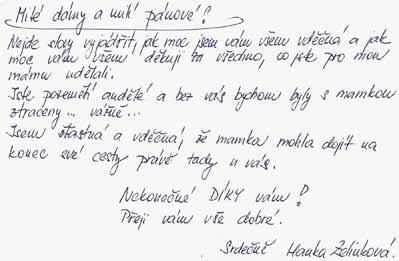 Milé dámy a milí pánové!
Nejde slovy vyjádřit, jak moc jsem vám všem vděčná a jak
moc vám všem děkuji za všechno, co jste pro mou
mámu udělali.
Jste pozemští andělé a bez vás bychom byly s mamkou
ztraceny... vážně...
Jsem šťastná a vděčná, že mamka mohla dojít na
konec své cesty právě tady u vás.
Nekonečné DÍKY vám!
Přeji vám vše dobré.
Srdečně Hanka Zelinková.